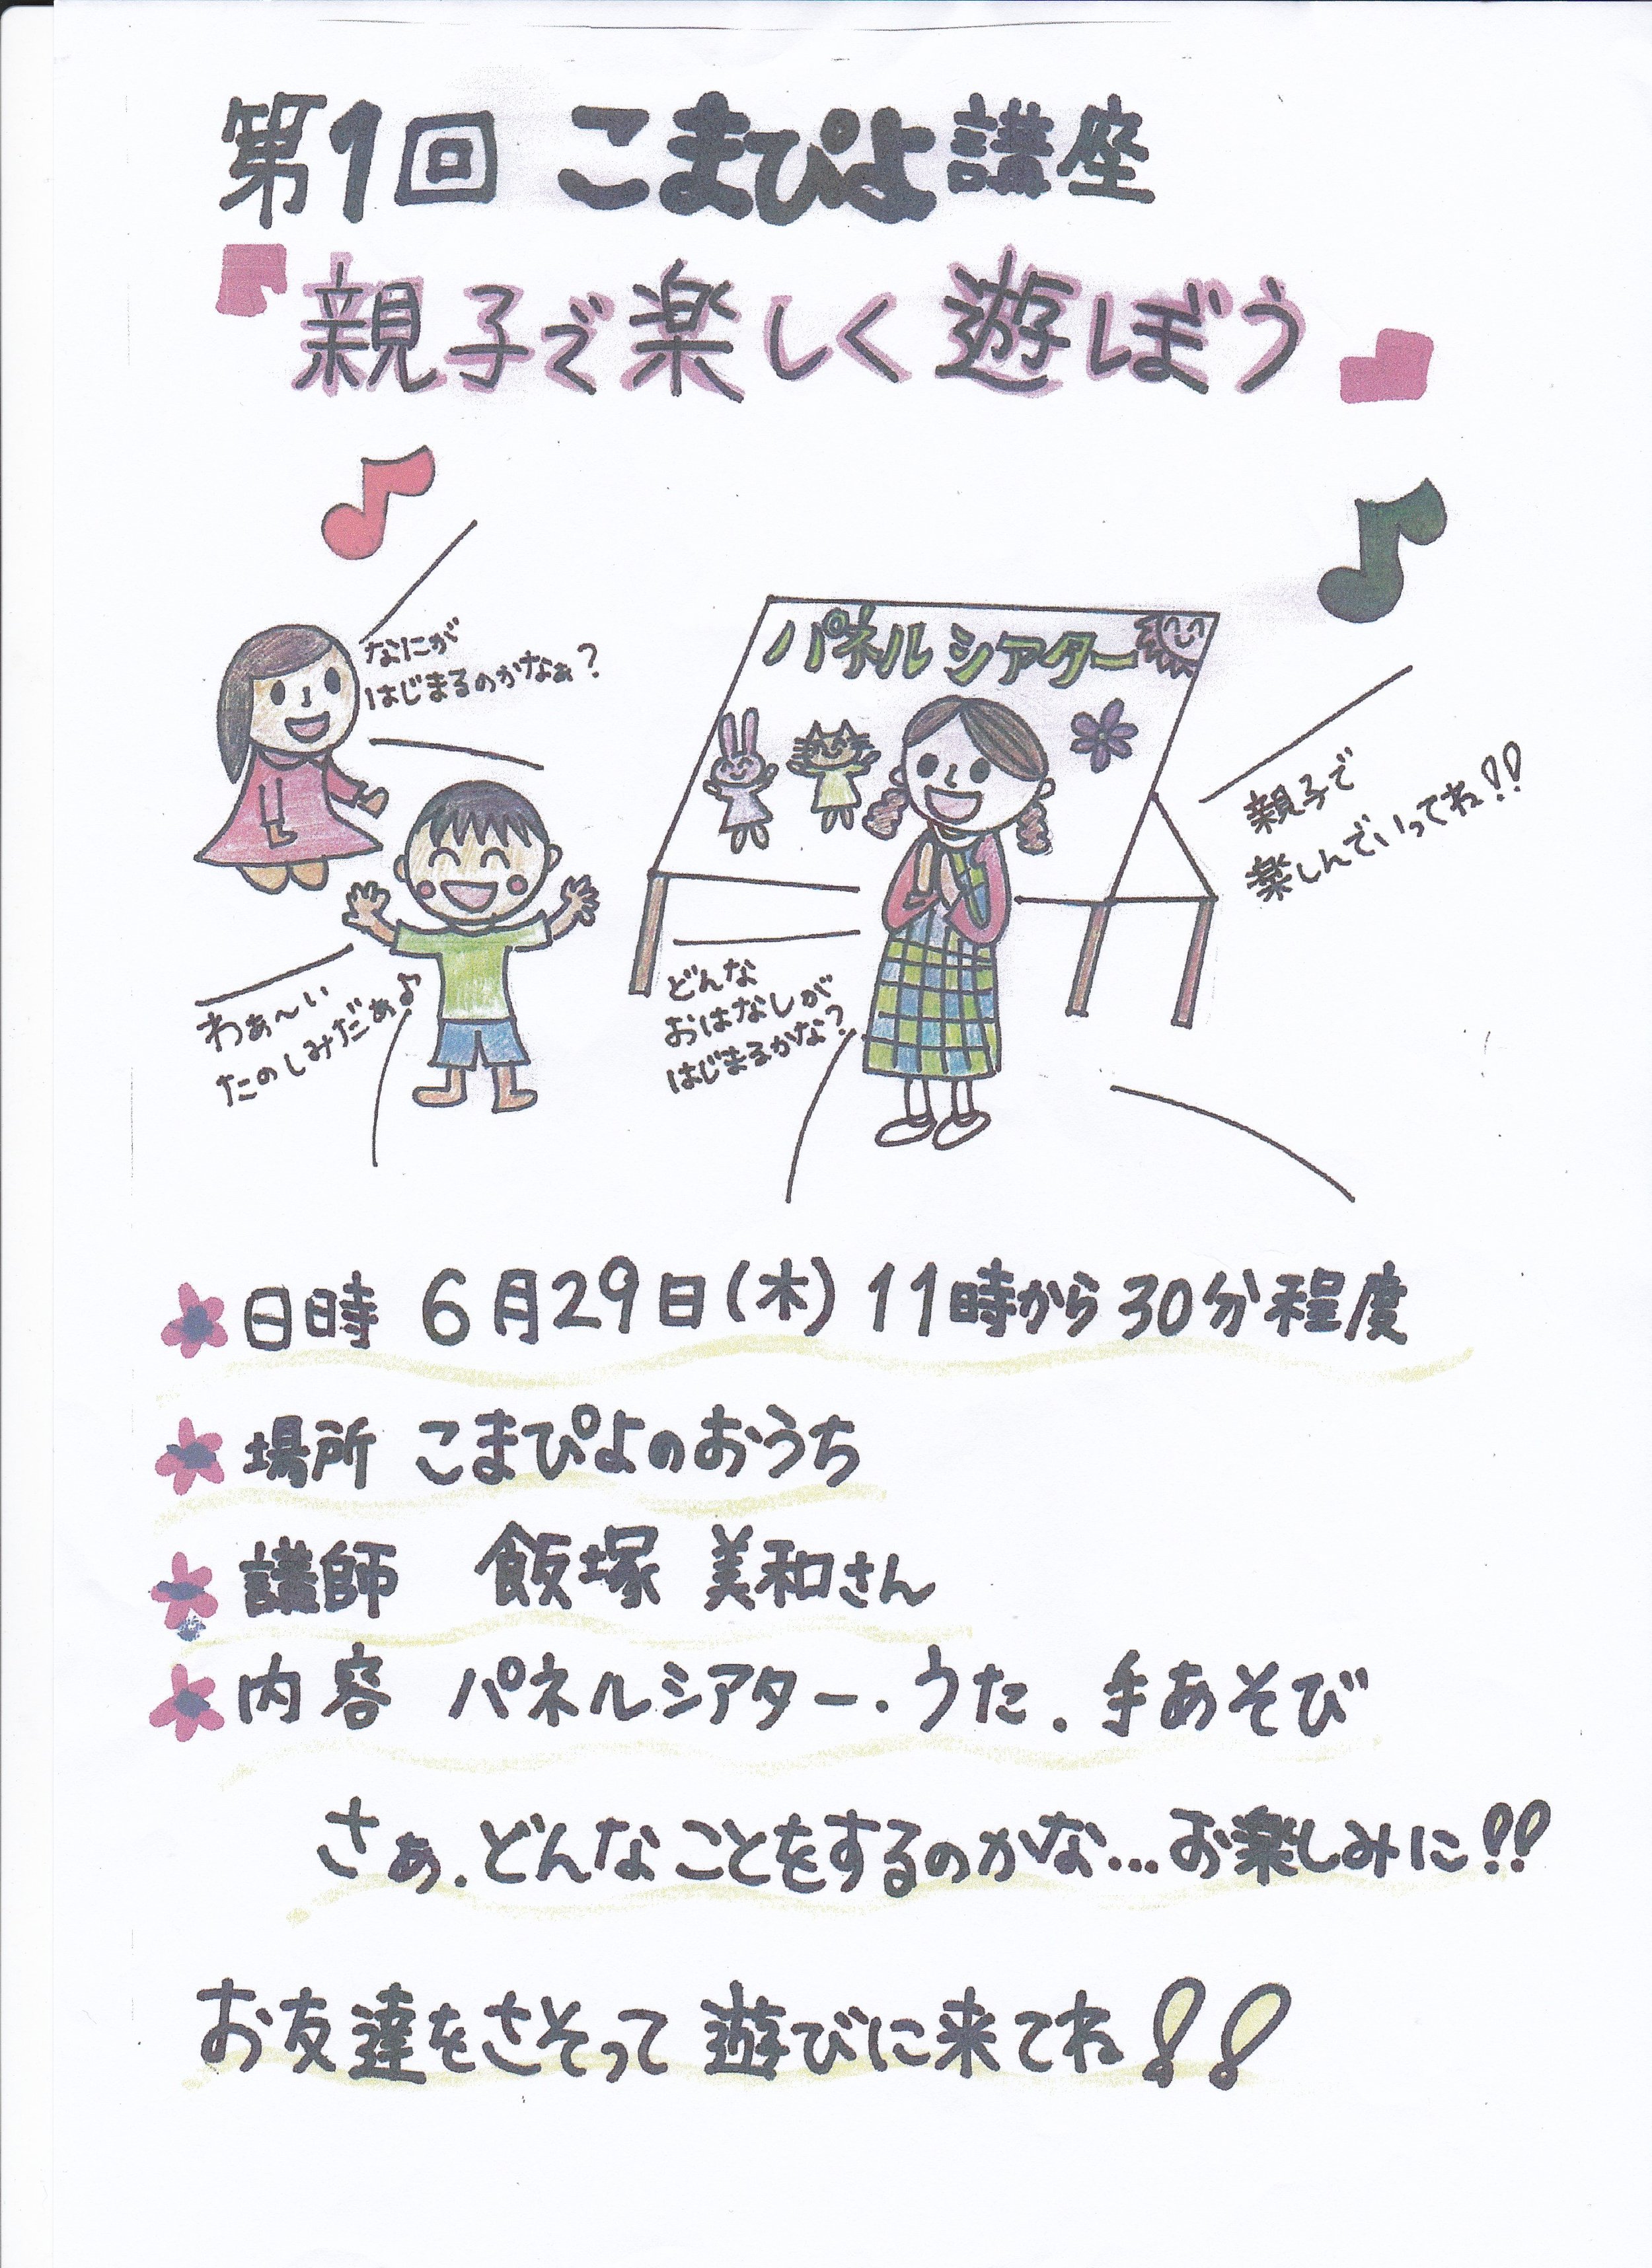 第1回 こまぴよ講座
『親子で楽しく遊ぼう』
なにが
はじまるのかなぁ?
パネルシアター
親子で
楽しんでいってね!!
わぁ〜い
たのしみだぁ♪
どんな
おはなしが
はじまるかな?
日時 6月29日(木) 11時から30分程度
場所 こまぴよのおうち
講師 飯塚 美和さん
内容 パネルシアター・うた.手あそび
さぁ.どんなことをするのかな...お楽しみに!!
お友達をさそって遊びに来てね!!